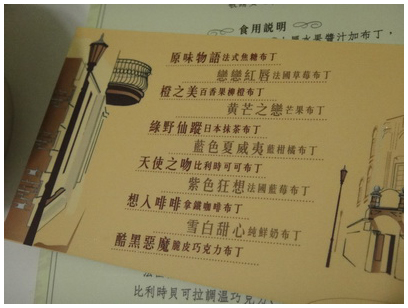 食用説明
水果醬汁加布丁,
原味物語法式焦糖布丁
戀戀紅唇法國草莓布丁
橙之美百香果柳橙布丁
黄芒之戀芒果布丁
綠野仙蹤日本抹茶布丁
藍色夏威夷藍柑橘布丁
天使之吻比利時可可布丁
紫色狂想法國藍莓布丁
想入啡啡拿鐵咖啡布丁
雪白甜心純鮮奶布丁
酷黑惡魔脆皮巧克力布丁
比利時貝可拉調溫巧克力